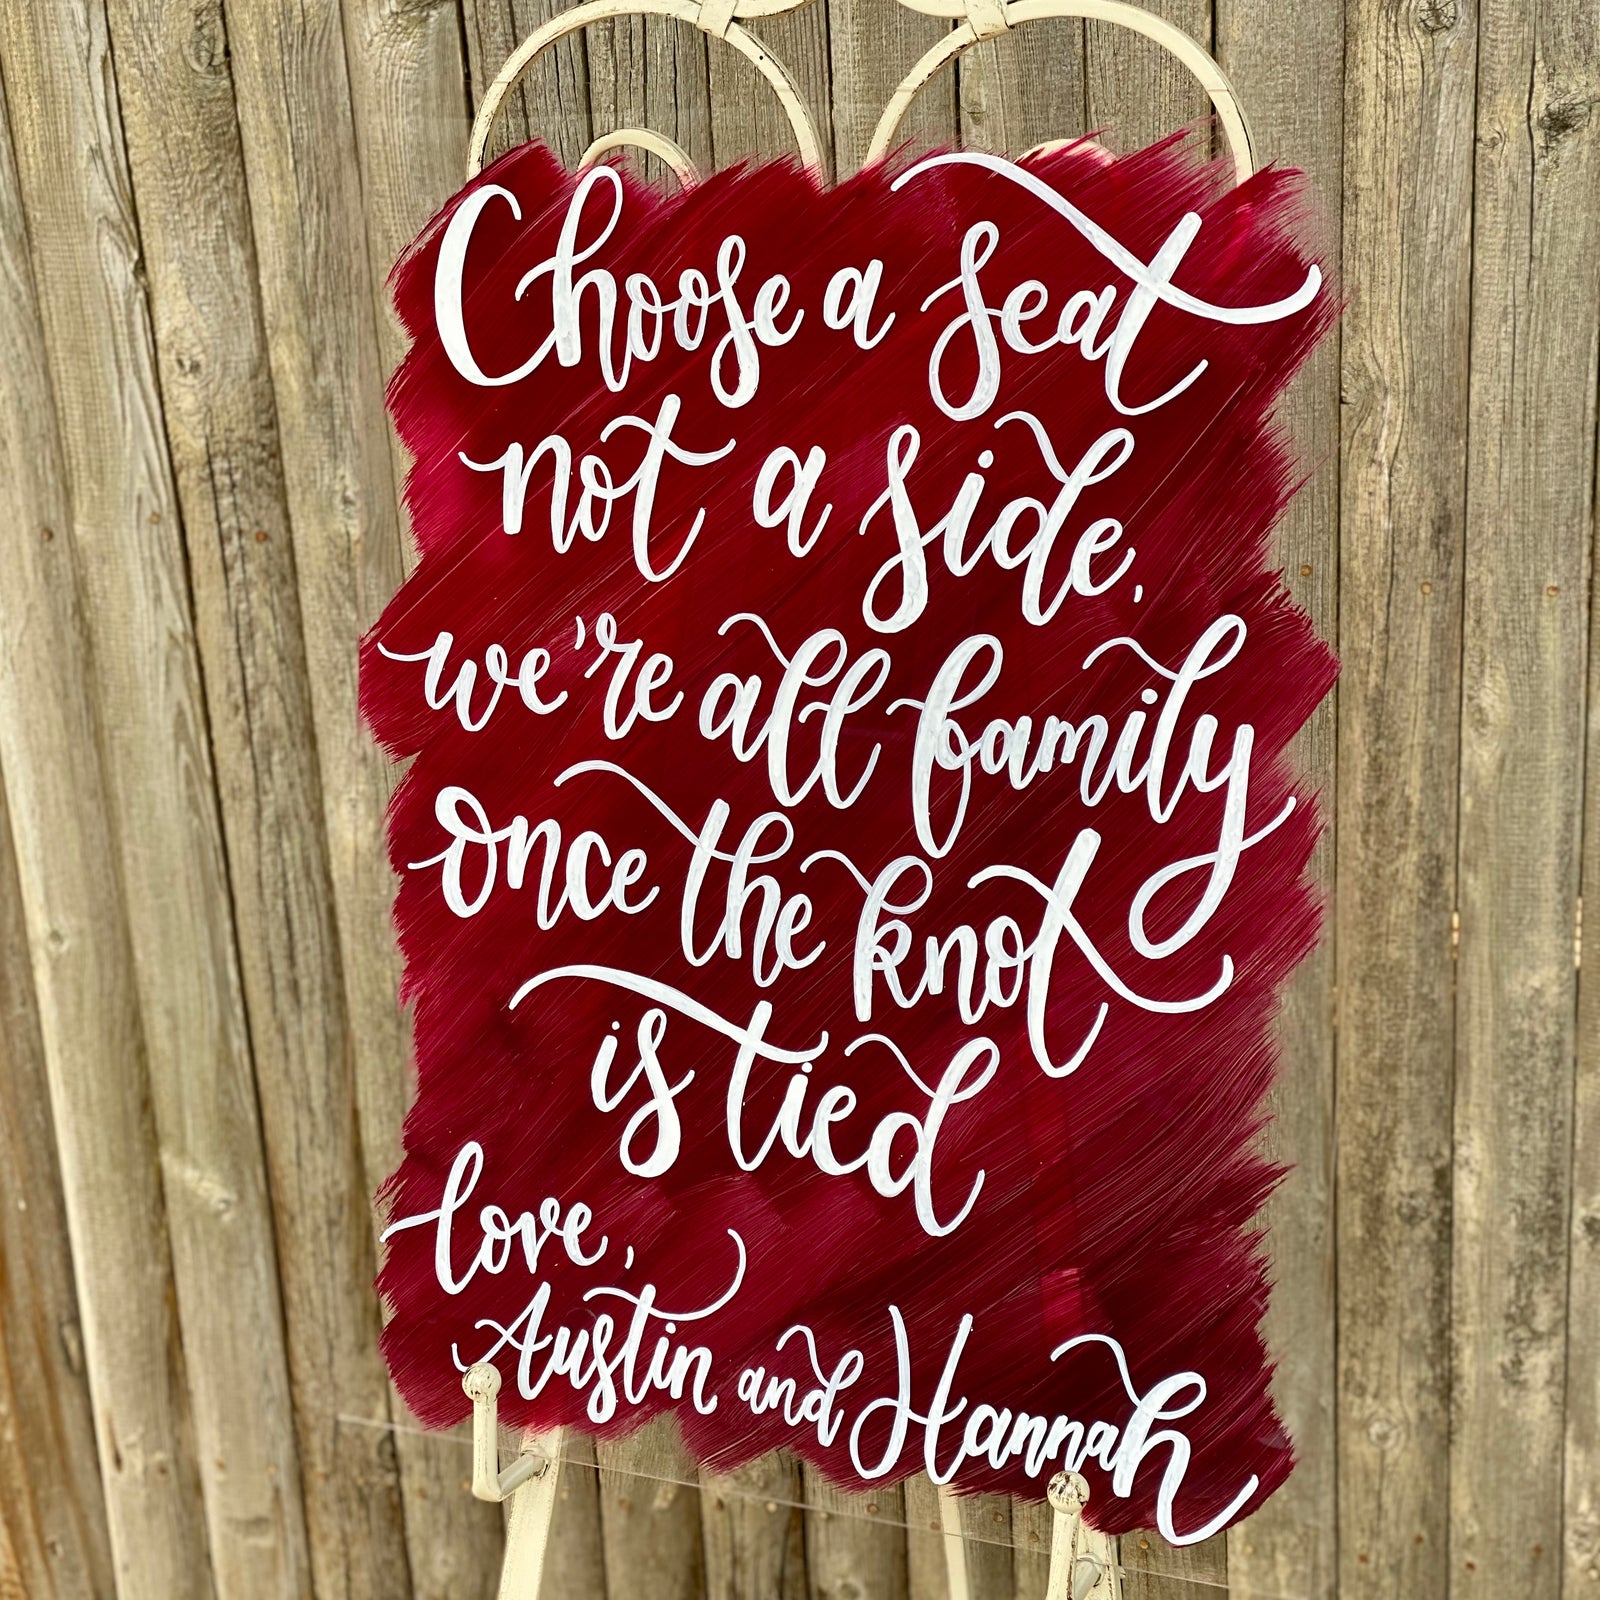 Choose a seat
not a side,
we're all family
once the knot
is tied
love,
Austin and Hannah